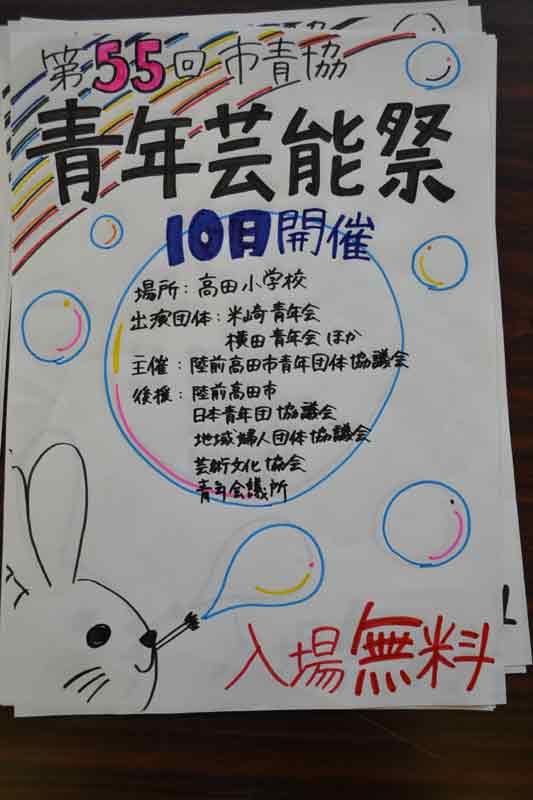 第55回市青協
青年芸能祭
10月開催
場所：高田小学校
出演団体：米崎青年会
横田青年会ほか
主催：陸前高田市青年団体協議会
後援：陸前高田市
日本青年団協議会
地域婦人団体協議会
芸術文化協会
青年会議所
入場無料